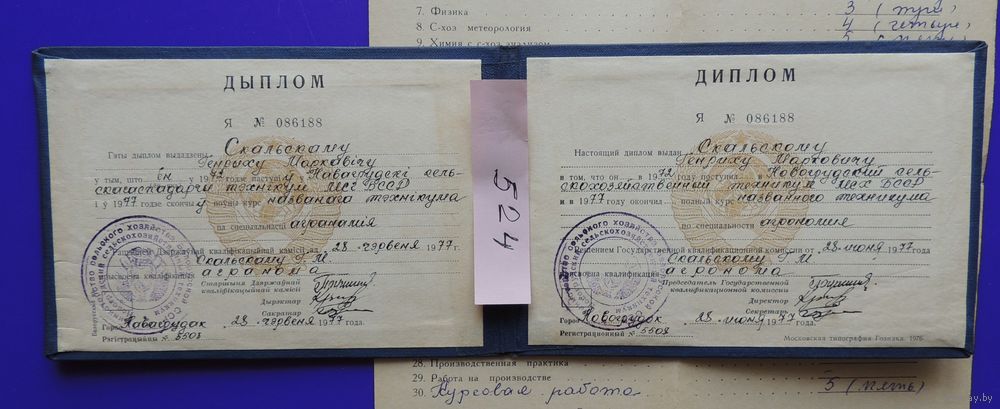 7. Физика 3 (три)
8. С-хоз метеорология 4 (четыре)
9. Химия с с-хоз анализом 5
ДЫПЛОМ
Я № 086188
Гэты дыплом выдадзены Скальскаму
Генриху Маркавічу
у тым, што ён у 1972 годзе паступіў у Навагрудскі сель-
скагаспадарчы тэхнікум МСГ БССР
і ў 1977 годзе скончыў поўны курс названага тэхнікума
па спецыяльнасці аграномия
Рашэннем Дзяржаўнай кваліфікацыйнай камісіі ад 28 чэрвеня 1977 г.
Скальскаму Г.М.
прысвоена кваліфікацыя агранома
Старшыня Дзяржаўнай
кваліфікацыйнай камісіі
Дырэктар
Сакратар
Горад Навагрудак 28 чэрвеня 1977 года.
Рэгістрацыйны № 5508
524
ДИПЛОМ
Я № 086188
Настоящий диплом выдан Скальскому
Генриху Марковичу
в том, что он в 1972 году поступил в Новогрудский сель-
скохозяйственный техникум МСХ БССР
и в 1977 году окончил полный курс названного техникума
по специальности агрономия
Решением Государственной квалификационной комиссии от 28 июня 1977
Скальскому Г.М.
присвоена квалификация агронома
Председатель Государственной
квалификационной комиссии
Директор
Секретарь
Город Новогрудок 28 июня 1977 года.
Регистрационный № 5508
Московская типография Гознака. 1976.
28. Производственная практика
29. Работа на производстве 5 (пять)
30. Курсовая работа
ay.by